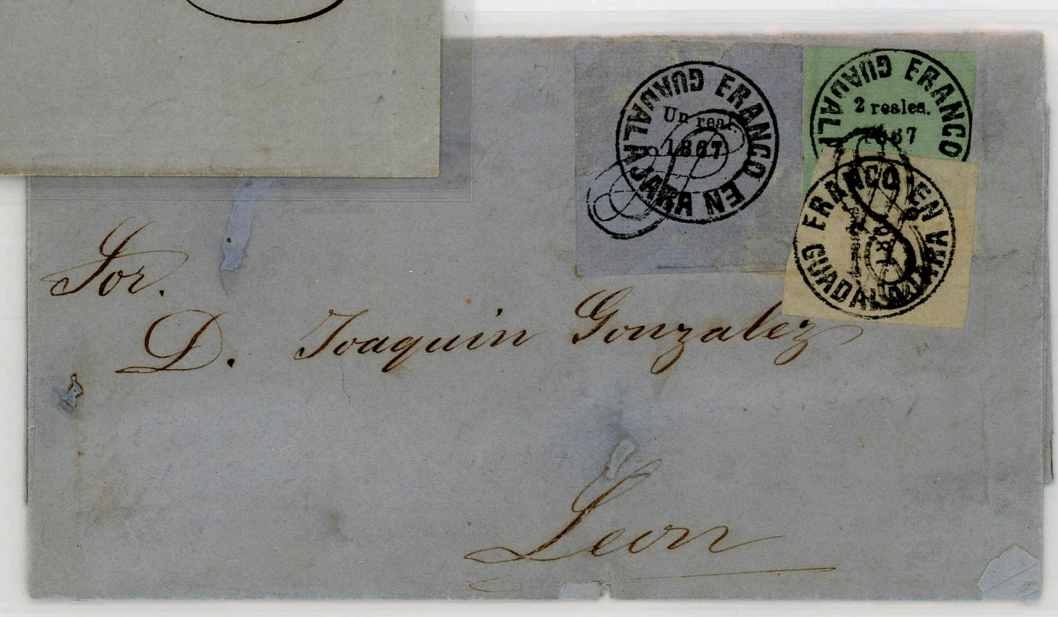 FRANCO EN GUADALAJARA
Un real
1867
FRANCO
GUADALA
2 reales.
1867
FRANCO EN GUADALAJARA
Sor.
D. Joaquin Gonzalez
Leon